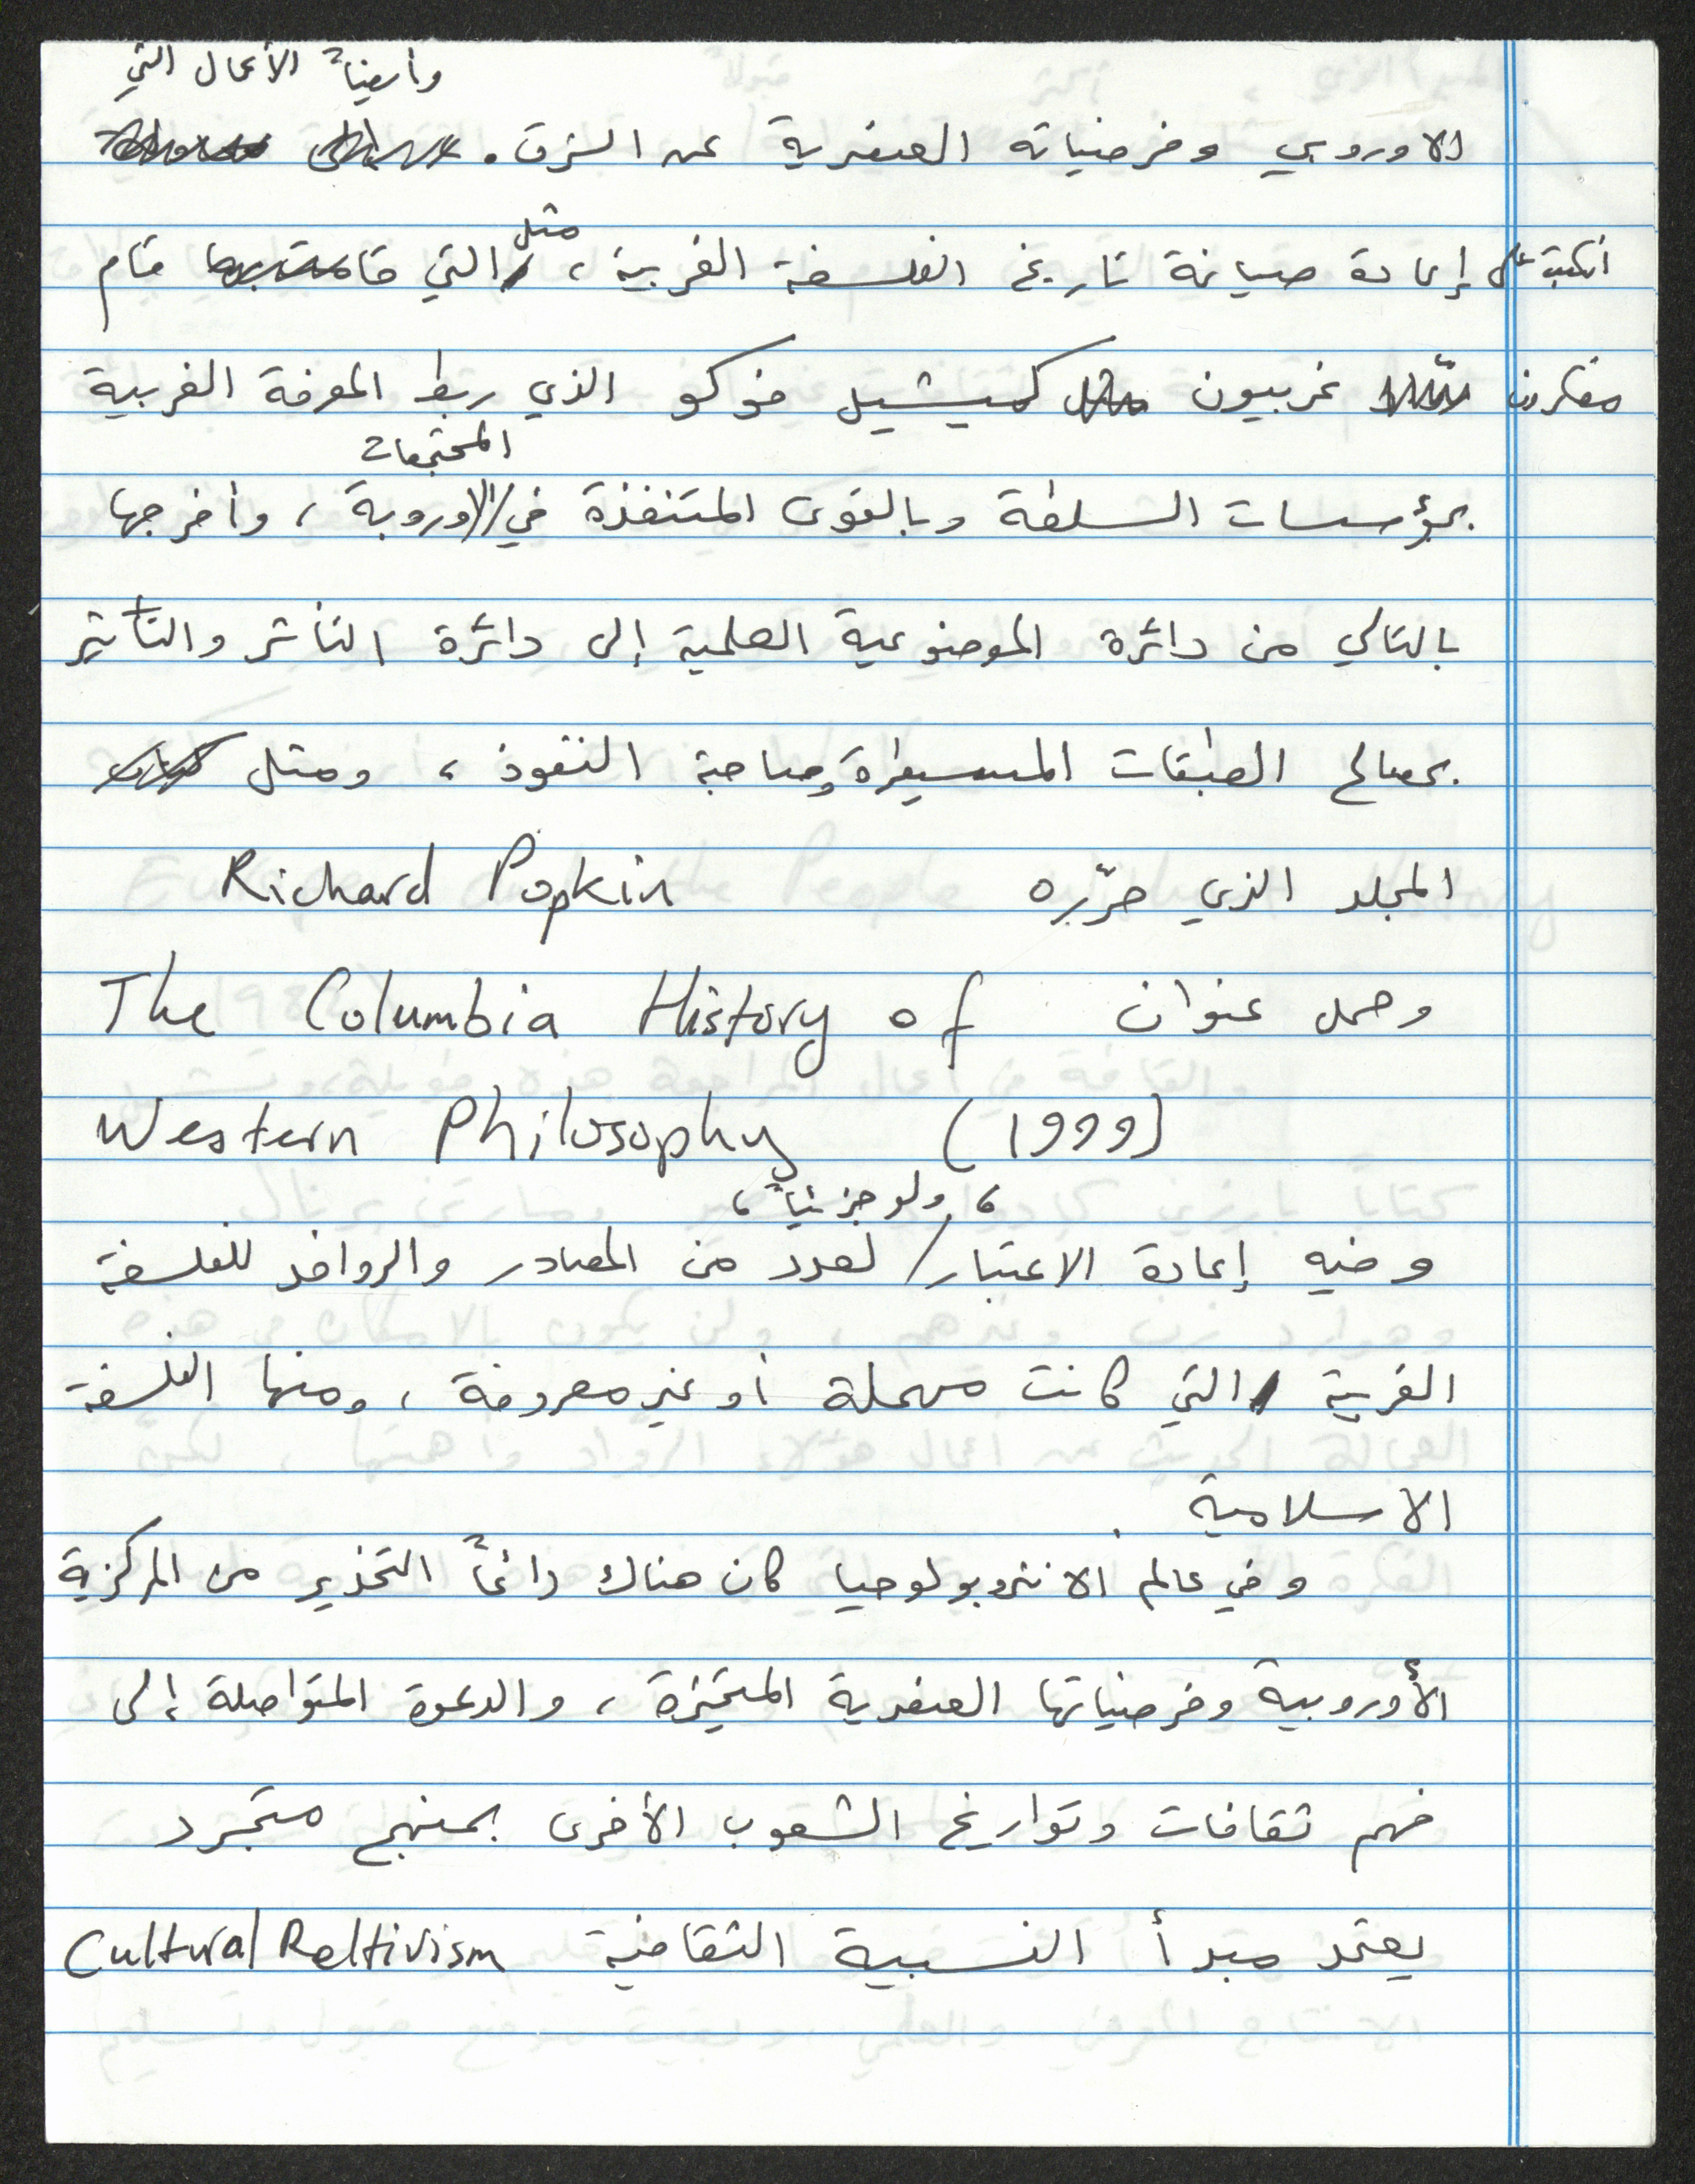 وأيضاً الأعمال التي
الاوروبي وفرضياته العنصرية عن الشرق.
انكبت على إعادة صياغة تاريخ الفلسفة الغربية، مثل التي قام
مفكرون غربيون كميشيل فوكو الذي ربط المعرفة الغربية
المجتمعات
بمؤسسات السلطة وبالقوى المتنفذة في الاوروبة، وأخرجها
بالتالي من دائرة الموضوعية العلمية إلى دائرة التأثر والتأثير
بمصالح الطبقات المسيطرة وصاحبة النفوذ، ومثل
المجلد الذي حرّره Richard Popkin
وحمل عنوان The Columbia History of
Western Philosophy (1999)
، ولو جزئياً،
وفيه إعادة الاعتبار لعدد من المصادر والروافد للفلسفة
الغربية التي كانت مهملة أو غير معروفة، ومنها الفلسفة
الاسلامية.
وفي عالم الانثروبولوجيا كان هناك دائماً التحذير من المركزية
الأوروبية وفرضياتها العنصرية المتحيزة، والدعوة المتواصلة إلى
فهم ثقافات وتواريخ الشعوب الأخرى بمنهج متجرد
يعتمد مبدأ النسبية الثقافية Cultural Reltivism